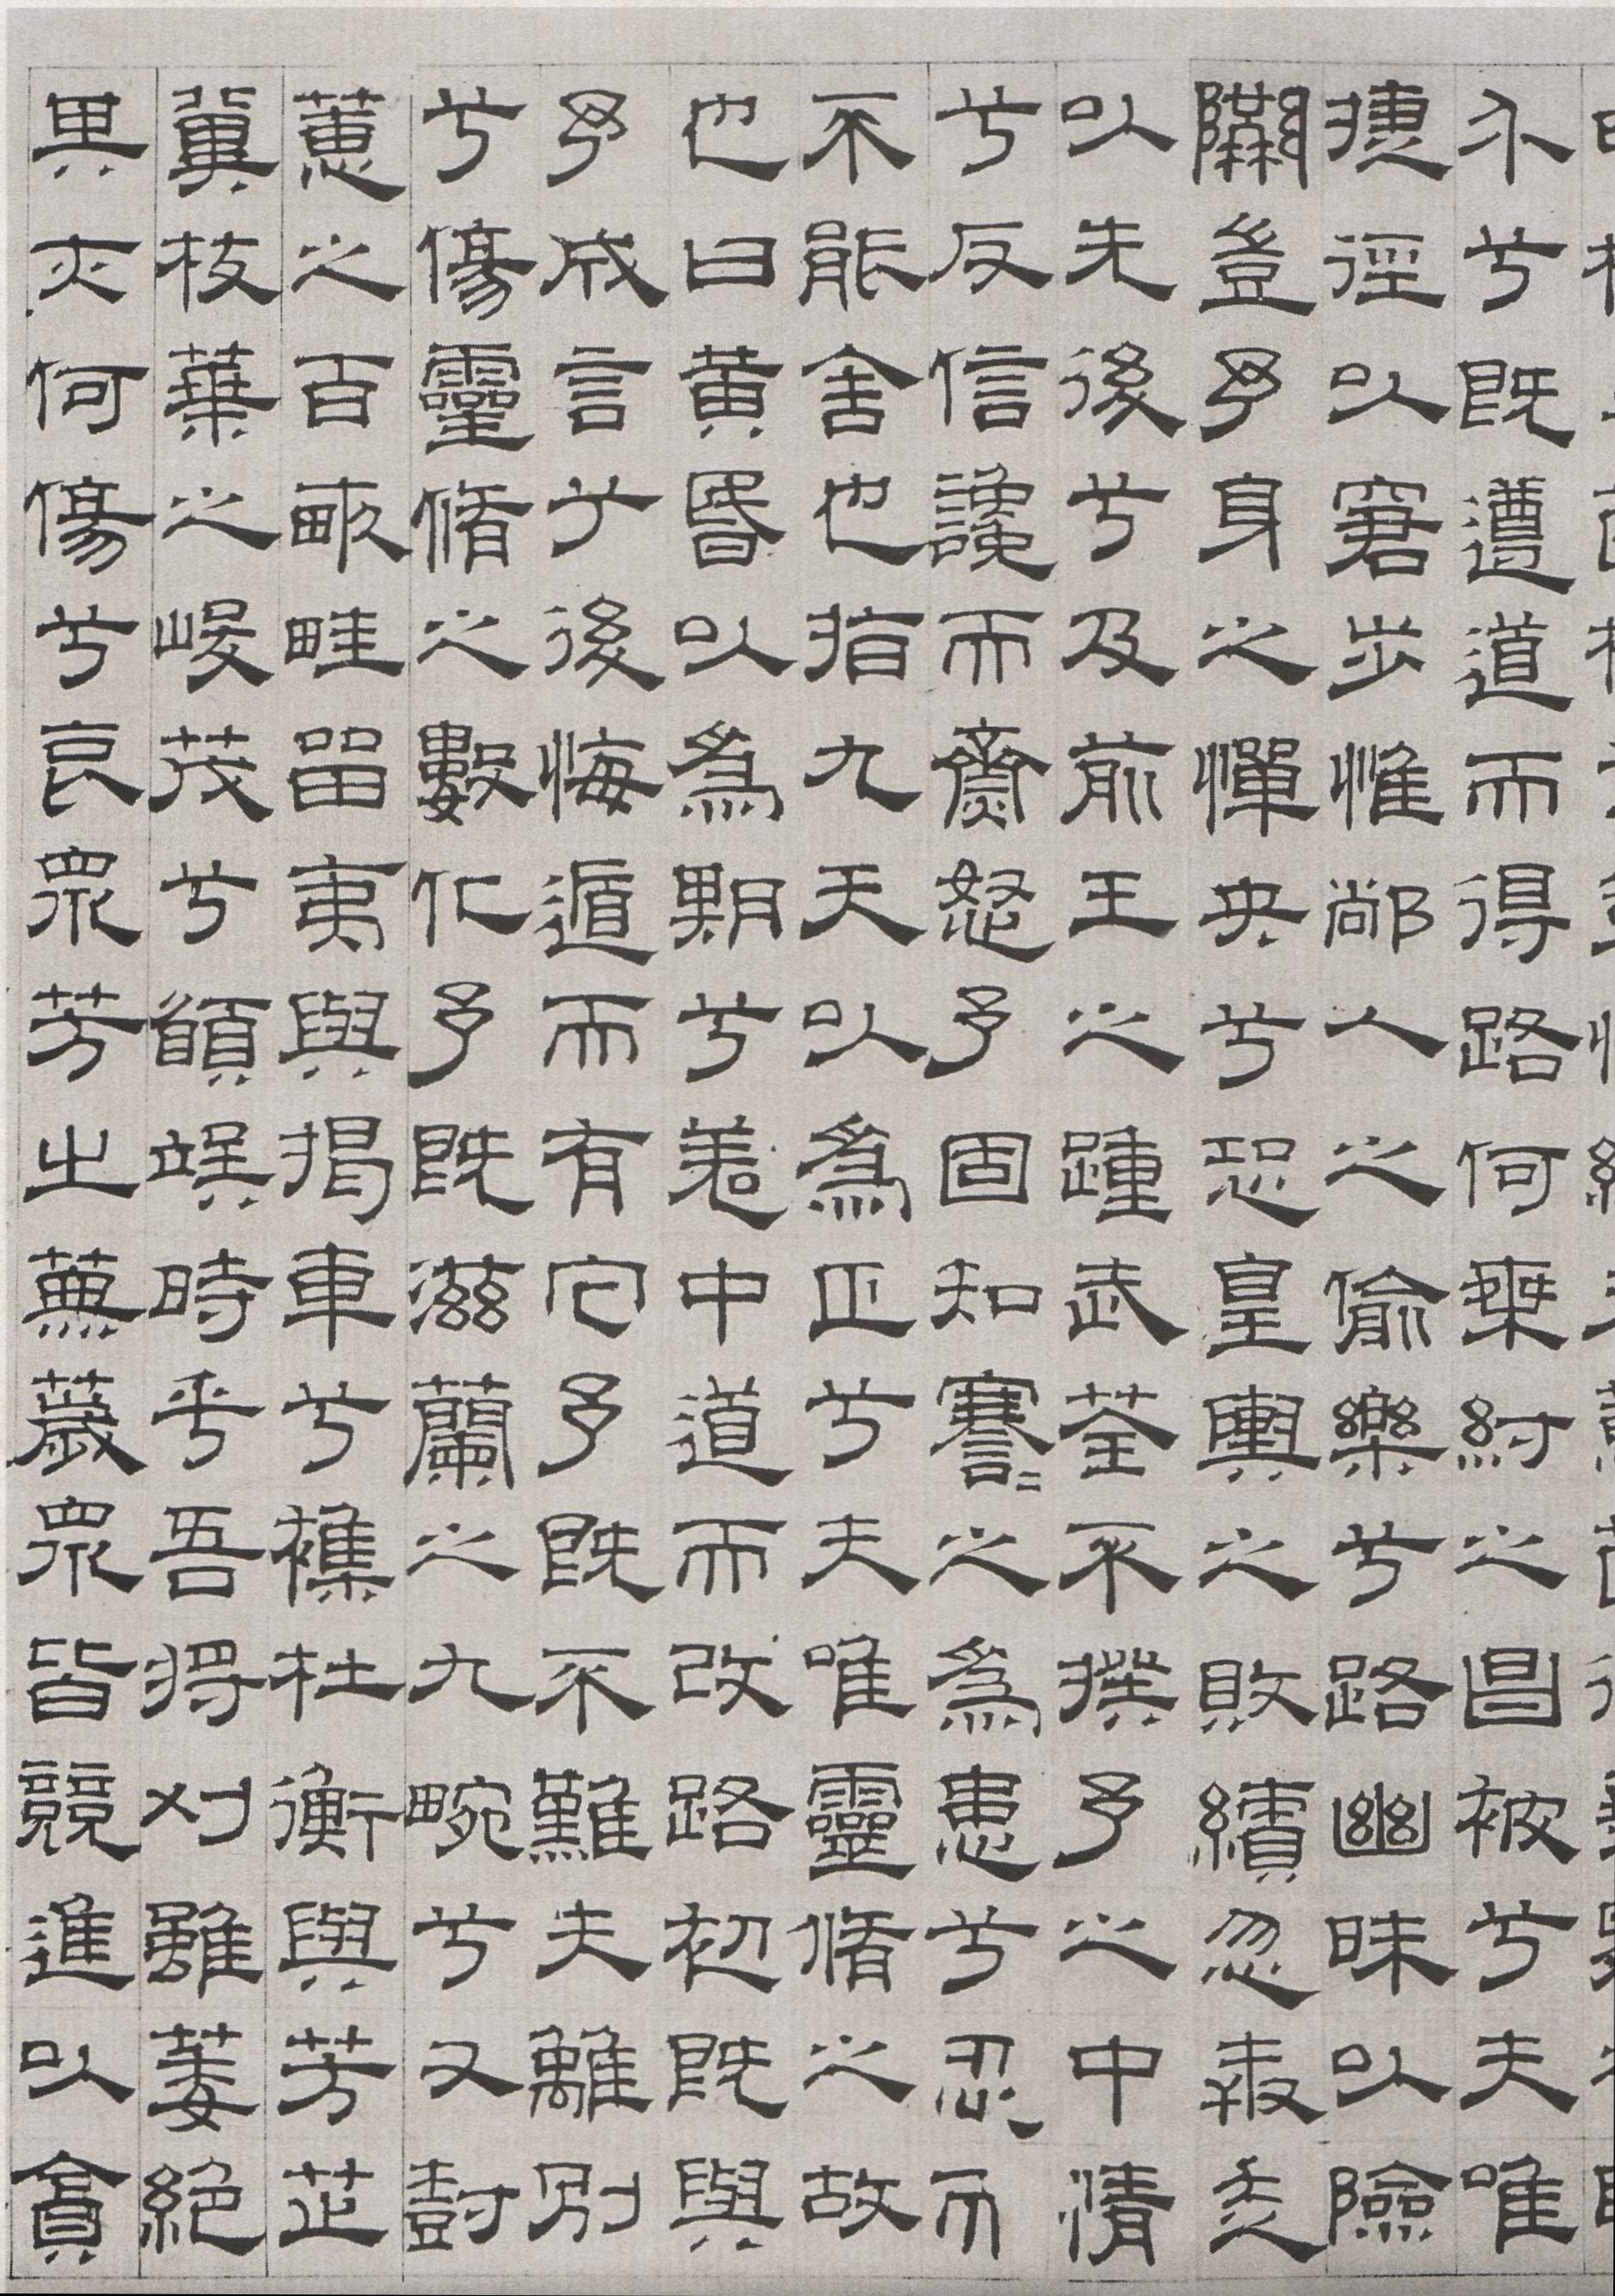 介兮既遵道而得路何桀紂之昌被兮夫唯
捷徑以窘步惟䣊人之偷樂兮路幽昧以險
隘豈予身之憚央兮恐皇輿之敗績忽奔走
以先後兮及前王之踵武荃不揆予之中情
兮反信讒而齌怒予固知謇〻之爲患兮忍而
不能舍也指九天以爲正兮夫唯靈脩之故
也曰黃昏以爲期兮羌中道而改路初既與
予成言兮後悔遁而有它予既不難夫離別
兮傷靈脩之數化予既滋蘭之九畹兮又樹
蕙之百畝畦留夷與揭車兮雜杜衡與芳芷
冀枝葉之峻茂兮願竢時乎吾將刈雖萎絕
其亦何傷兮哀眾芳之蕪薉眾皆競進以貪